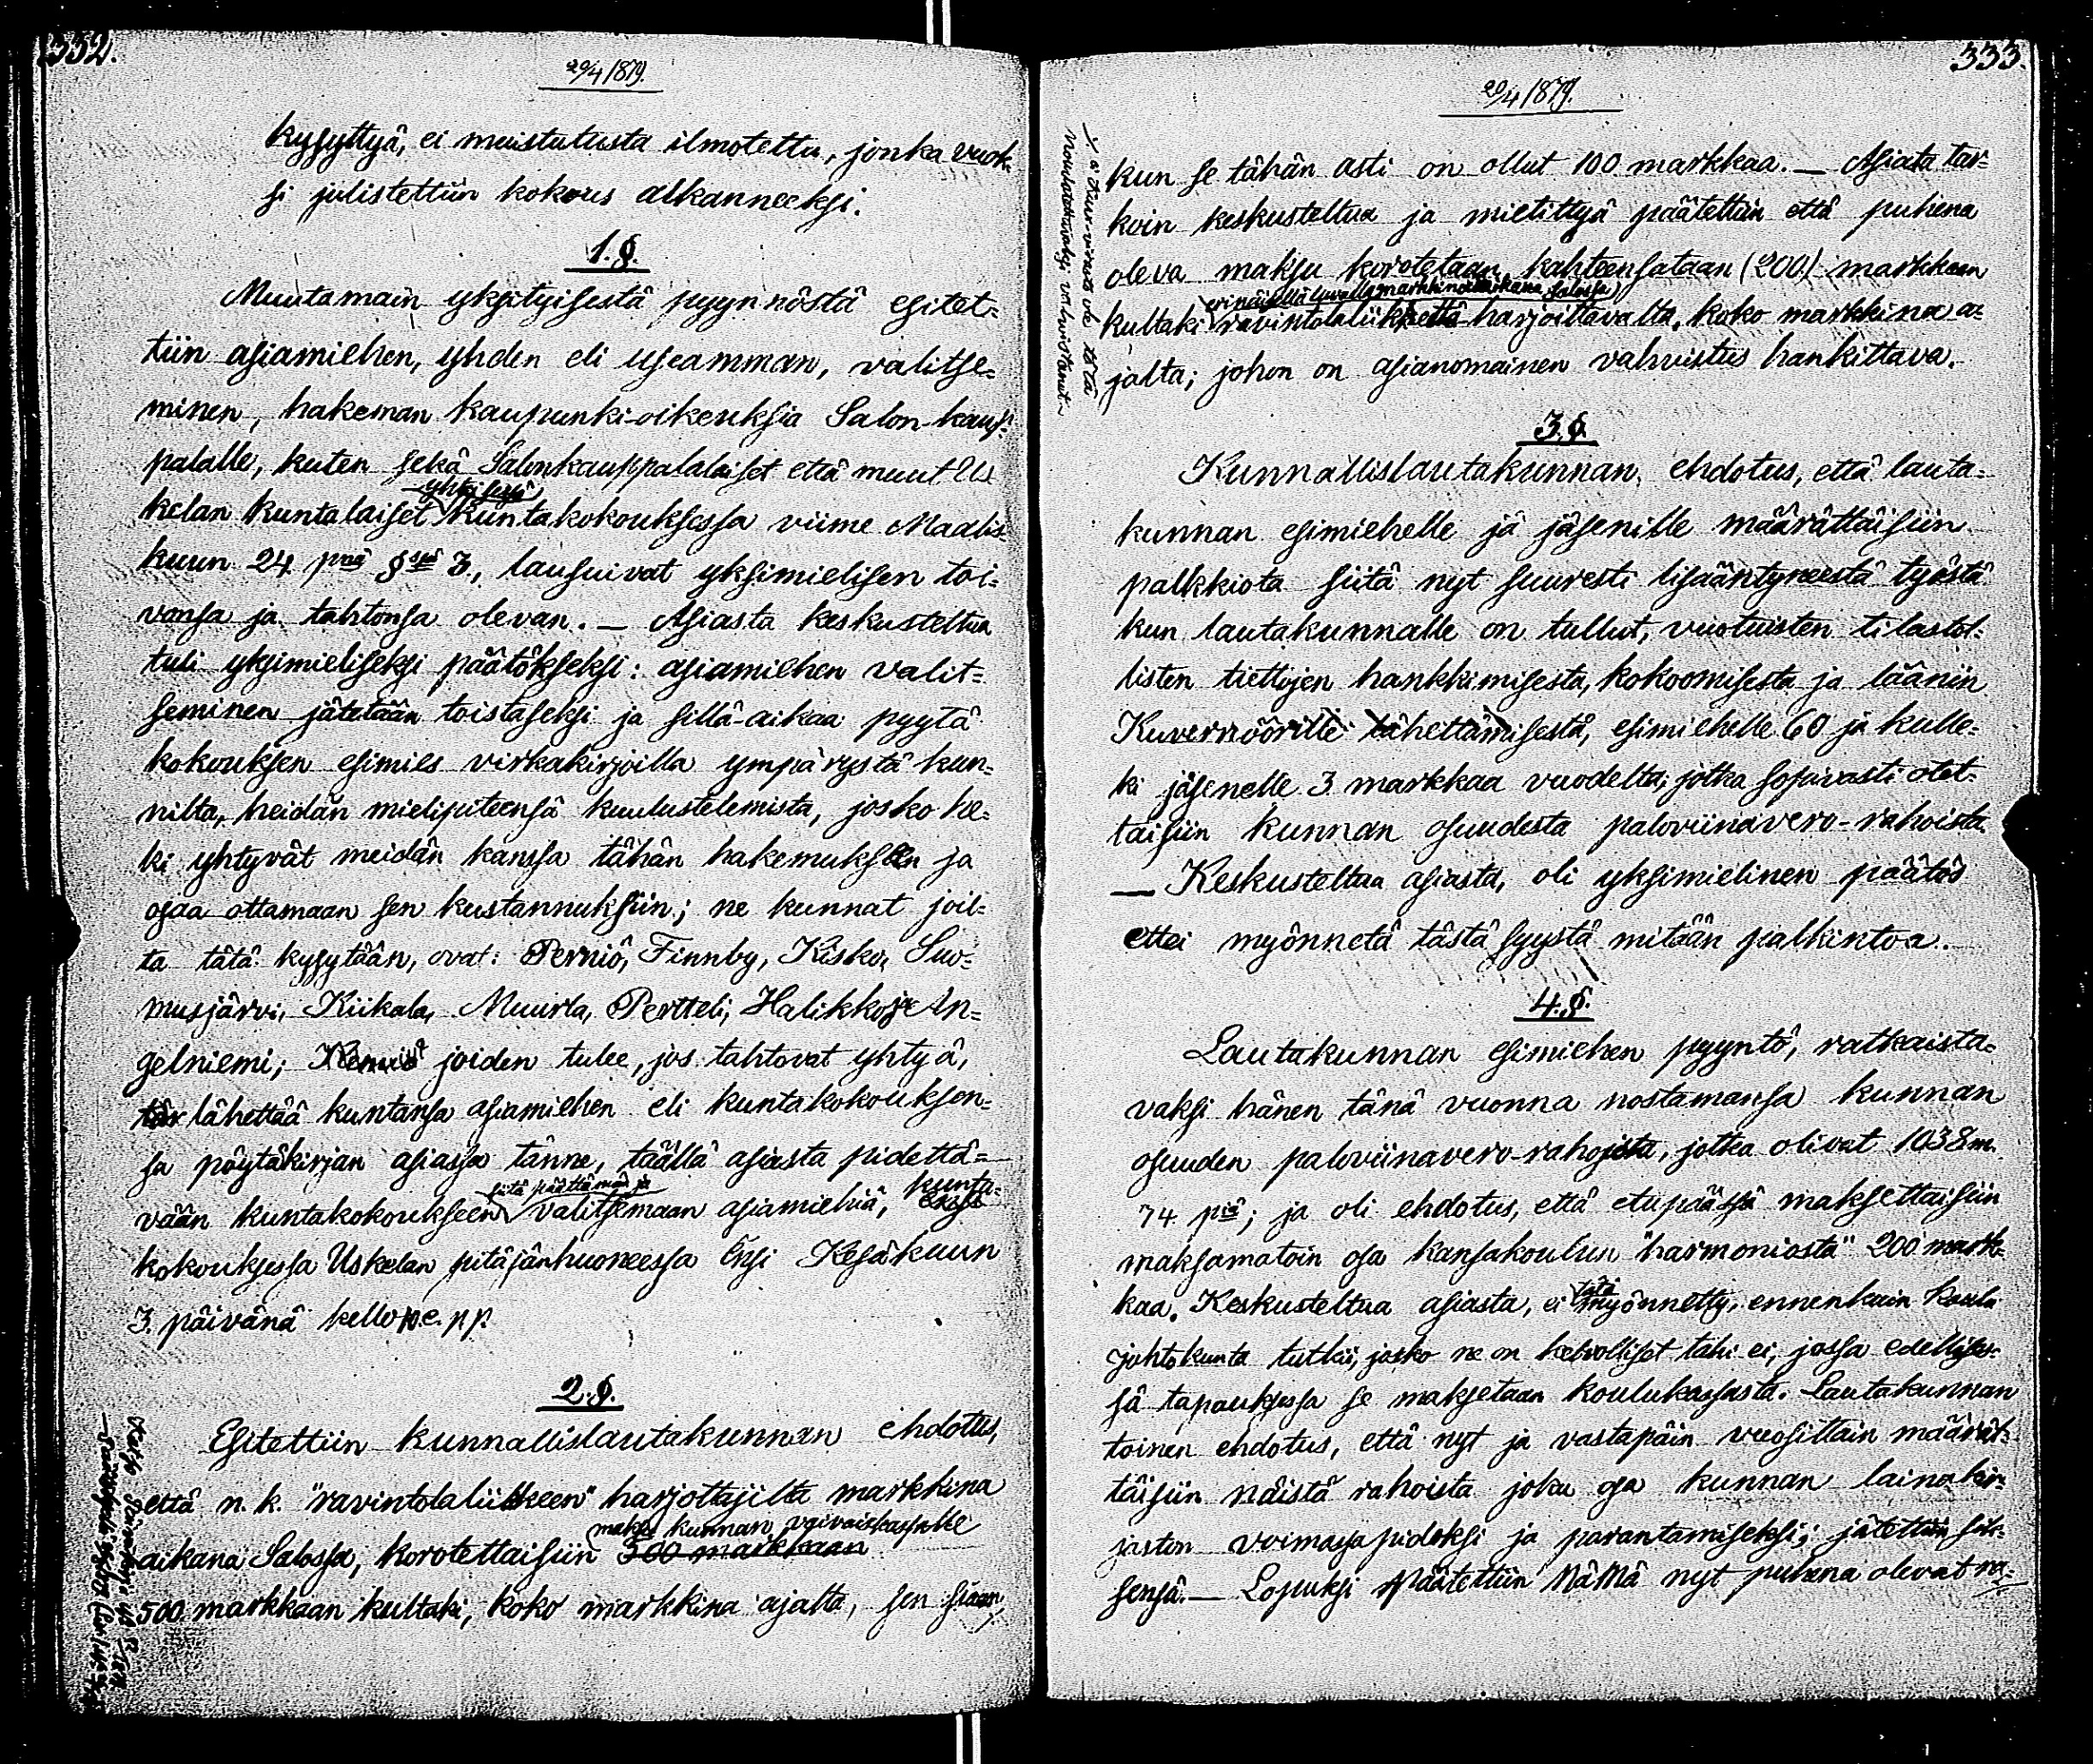 332.
29/4 1879.
kysyttyä, ei muistutusta ilmotettu, jonka vuok-
si julistettiin kokous alkanneeksi.
1. §.
Muutamain yksityisestä pyynnöstä esitet-
tiin asiamiehen, yhden eli useamman, valitse-
minen, hakeman kaupunki-oikeuksia Salon kaup-
palalle, kuten sekä Salonkauppalalaiset että muut Us-
yhteisessä
kelan kuntalaiset kuntakokouksessa viime Maalis-
kuun 24 pnä §ssä 3, lausuivat yksimielisen toi-
vonsa ja tahtonsa olevan. — Asiasta keskusteltua
tuli yksimieliseksi päätökseksi: asiamiehen valit-
seminen jätetään toistaseksi ja sillä-aikaa pyytä
kokouksen esimies virkakirjoilla ympärystä kun-
nilta, heidän mielipiteensä kuulustelemista, josko he-
ki yhtyvät meidän kanssa tähän hakemukseen ja
osaa ottamaan sen kustannuksiin; ne kunnat joil-
ta tätä kysytään, ovat: Perniö, Finnby, Kisko, Suo-
musjärvi, Kiikala, Muurla, Pertteli, Halikko ja An-
gelniemi; joiden tulee, jos tahtovat yhtyä,
lähettää kuntansa asiamiehen eli kuntakokouksen-
sa pöytäkirjan asiassa tänne, täällä asiasta pidettä-
siitä päättämän ja kunta-
vään kuntakokoukseen valitsemaan asiamiehiä,
kokouksessa Uskelan pitäjänhuoneessa Ensi Kesäkuun
3. päivänä kello 10 e. p.p.
2. §.
Esitettiin kunnallislautakunnan ehdotus,
että n. k. "ravintolaliikkeen" harjottajilta markkina
maksu kunnan vaivaiskassalle
aikana Salossa, korotettaisiin 500 markkaan
500 markkaan kultaki, koko markkina ajalta, sen siaan,
333.
29/4 1879.
kun se tähän asti on ollut 100 markkaa. — Asiata tar-
koin keskusteltua ja mietittyä päätettiin että puhena
oleva maksu korotetaan kahteensataan (200) markkaan
erinäisellä luvalla markkinaaikana Salossa
kultaki ravintolaliikettä harjoittavalta, koko markkina a-
jalta; johon on asianomainen vahvistus hankittava.
3. §.
Kunnallislautakunnan, ehdotus, että lauta-
kunnan esimiehelle ja jäsenille määrättäisiin
palkkiota siitä nyt suuresti lisääntyneestä työstä
kun lautakunnalle on tullut, vuotuisten tilastol-
listen tiettojen hankkimisesta, kokoomisesta ja läänin
Kuvernöörille lähettämisestä, esimiehelle 60 ja kulle-
ki jäsenelle 3 markkaa vuodelta, jotka sopivasti otet-
taisiin kunnan osuudesta paloviinavero-rahoista.
— Keskusteltua asiasta, oli yksimielinen päätös
ettei myönnetä tästä syystä mitään palkintoa.
4. §.
Lautakunnan esimiehen pyyntö, ratkaista-
vaksi hänen tänä vuonna nostamansa kunnan
osuuden paloviinavero-rahoista, jotka olivat 1038 m.
74 piä; ja oli ehdotus, että etupäässä maksettaisiin
maksamatoin osa kansakoulun "harmoniasta" 200 mark-
tätä
kaa. Keskusteltua asiasta, ei myönnetty, ennenkuin koulu
johtokunta tutkii, josko ne on kelvolliset tahi ei, jossa edellises-
sä tapauksessa se maksetaan koulukassasta. Lautakunnan
toinen ehdotus, että nyt ja vastapäin vuosittain määrät-
täisiin näistä rahoista joku osa kunnan lainakir-
jaston voimassa pidoksi ja parantamiseksi; jätettiin sik-
sensä. — Lopuksi päätettiin Nämä nyt puhena olevat ra-